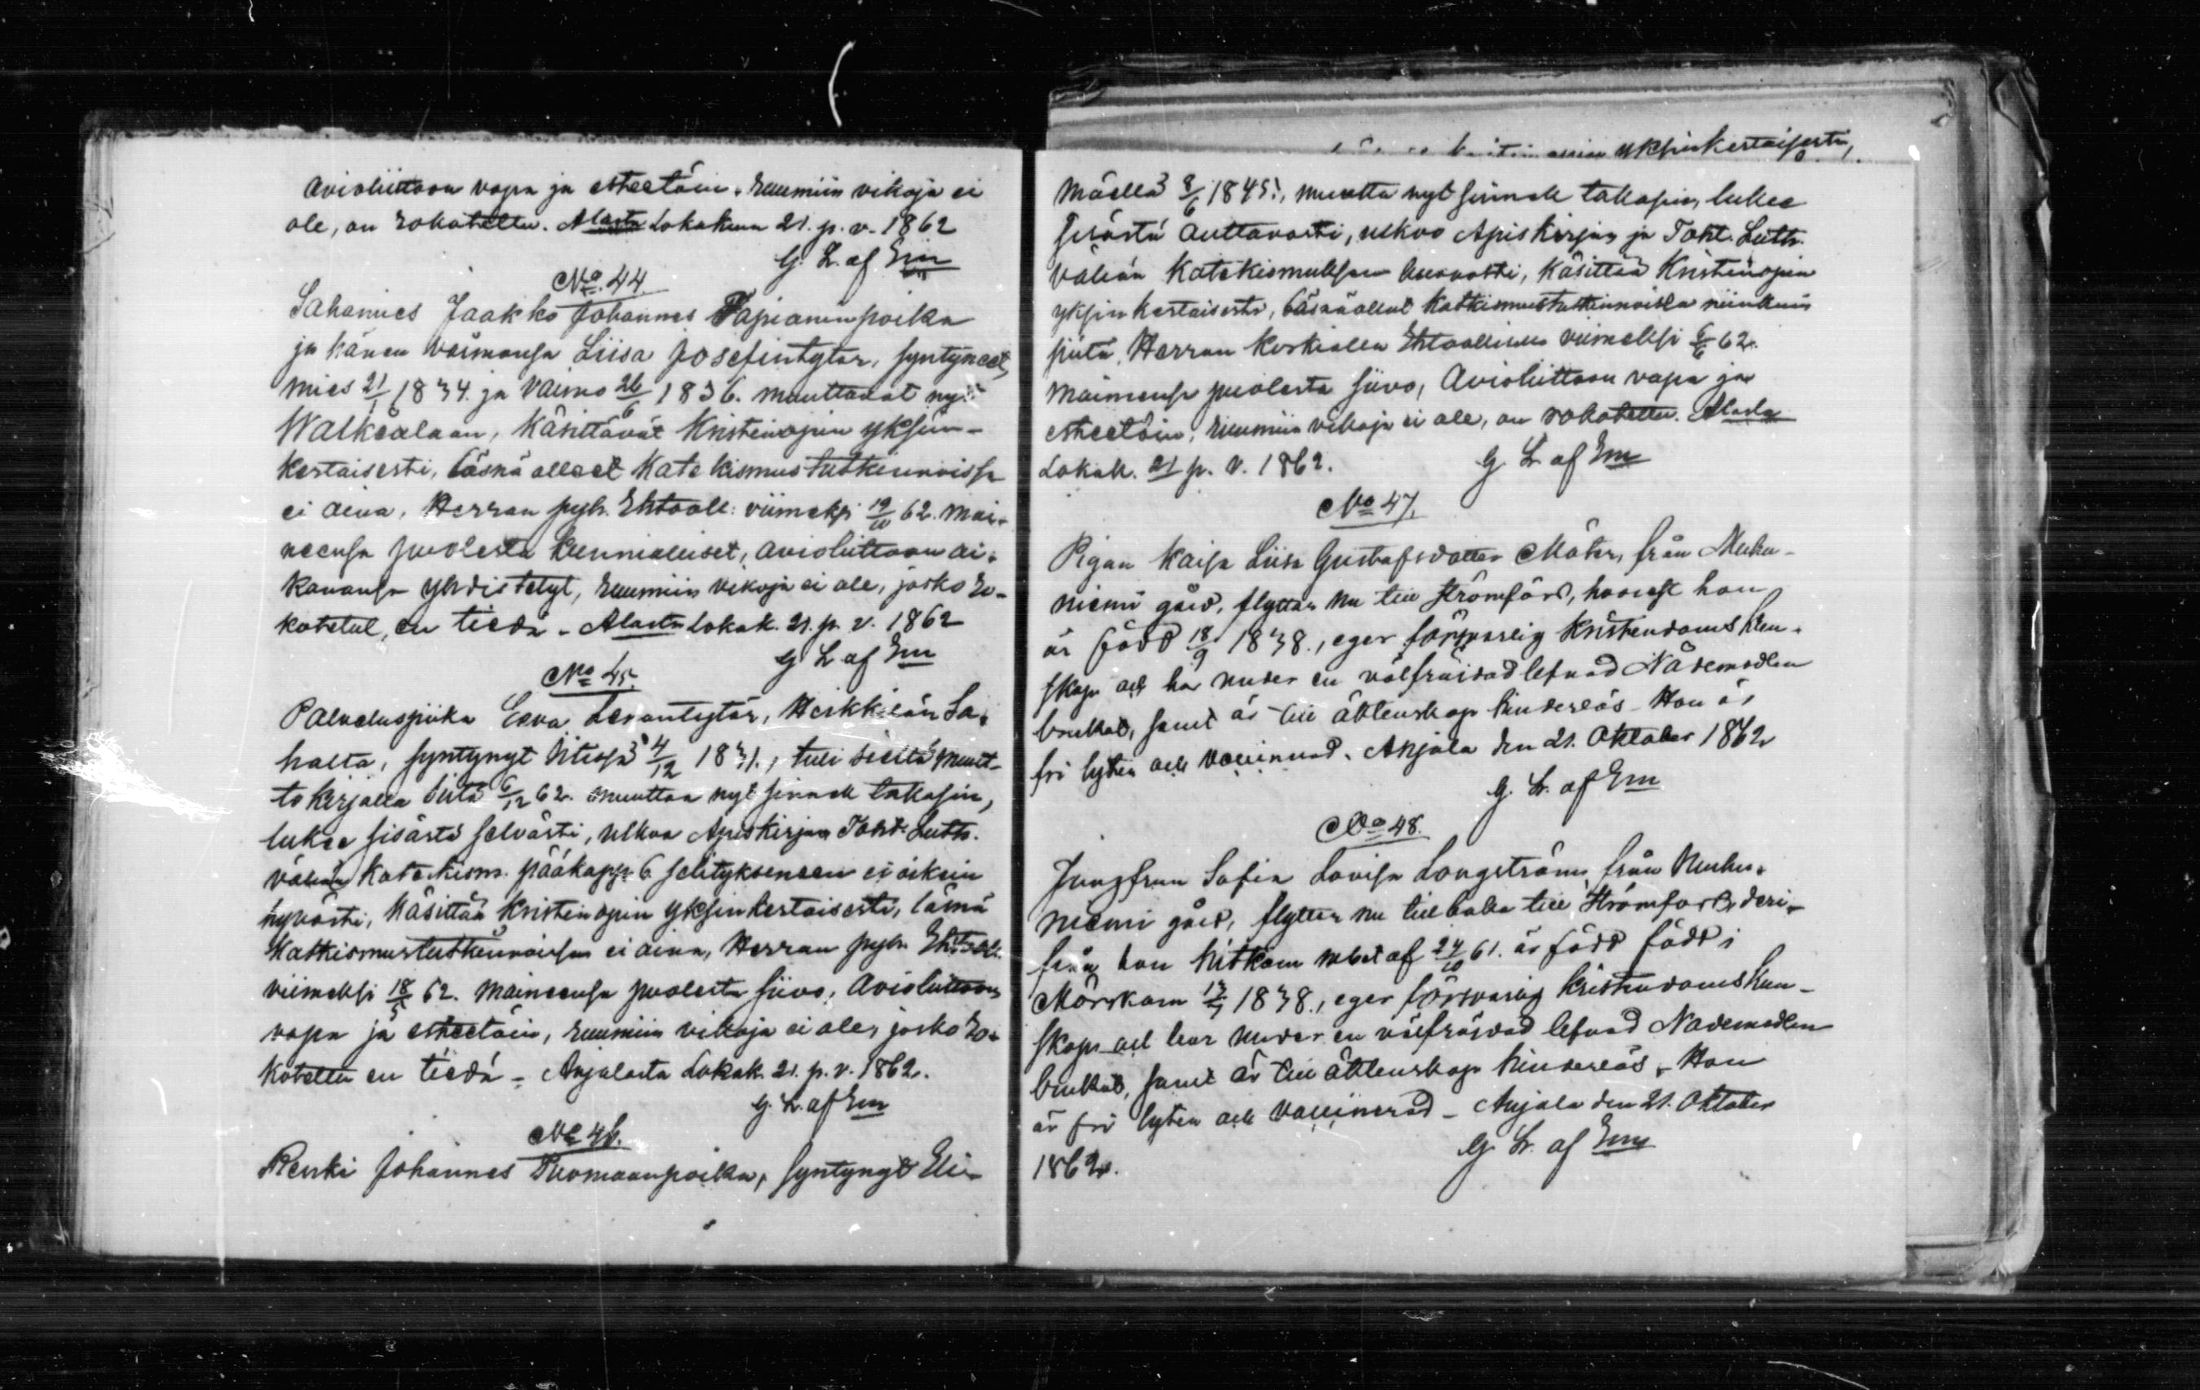 Avioliittoon vapa ja esteetöin, ruumiin vikoja ei
ole, on rokotettu. Alasta Lokakuun 21. p. v. 1862
G. L. af Em
No. 44.
Sahanmies Jaakko Johannes Tapiananpoika
ja hänen vaimonsa Liisa Josefintytär, syntyneet,
mies 21/1 1834. ja vaimo 26/6 1836. muuttavat nyt
Walkealaan, Käsittävät Kristinopin yksin-
kertaisesti, läsnä olleet Katekismus tutkinnoissa
ei aina, Herran pyh. Ehtooll: viimeksi 19/10 62. mai-
neensa puolesta kunnialliset, avioliittoon ai-
kanansa yhdistetyt, ruumiin vikoja ei ole, josko ro-
kotetut, en tiedä - Alasta Lokak. 21. p. v. 1862
G. L af Em
No 45.
Palveluspiika Eeva Levantytär, Heikkilän Sa-
halta, syntynyt Itissä 4/12 1831., tuli sieltä muut-
to kirjalla siitä 6/12 62. muuttaa nyt sinnek takasin,
lukee sisästä selvästi, ulkoa Apiskirjan Toht. Luth.
vähän Katekism. pääkapp. 6 selityksineen ei oikein
hyvästi, Käsittää Kristinopin yksinkertaisesti, läsnä
Katkismustutkinnoissa ei aina, Herran pyh. Ehtooll.
viimeksi 18/5 62. maineensa puolesta siivo, Avioliittoon
vapa ja esteetöin, ruumiin vikoja ei ole, josko ro-
kotettu en tiedä - Anjalasta Lokak. 21. p. v. 1862.
G. L. af Em
No 46.
Renki Johannes Tuomaanpoika, syntynyt Eli-
yksinkertaisesti,
mäellä 8/6 1845., muutta nyt sinnek takasin, lukee
sisästä auttavasti, ulkoo Apiskirjan ja Toht. Luth.
vähän Katekismuksen huonosti, Käsittää Kristinopin
yksinkertaisesti, läsnäollut Katkismustutkinnoissa niinkuin
pitä, Herran Korkialla Ehtoollisella viimeksi 6/6 62.
maineensa puolesta siivo, Avioliittoon vapa ja
esteetöin, ruumiin vikoja ei ole, on rokotettu. Alasta
Lokak. 21 p. v. 1862.
G. L. af Em
No 47.
Pigan Kaisa Liisa Gustafsdotter Mäter, från Muhu-
niemi gård, flyttar nu till Strömfors, hvarest hon
är född 18/9 1838., eger försvarlig Kristendomskun-
skap och har under en välfräjdad lefnad Nådemedlen
brukat, samt är till äktenskap hinderlös. Hon är
fri lyten och vaccinerad. Anjala den 21. Oktober 1862.
G. L. af Em
No 48.
Jungfrun Sofia Lovisa Longström, från Muhu-
niemi gård, flyttar nu tillbaka till Strömfors deri-
från hon hitkom me af 24/10 61. är född född i
Mörskom 13/7 1838., eger försvarlig Kristendomskun-
skap och har under en välfräjdad lefnad Nådemedlen
brukat, samt är till äktenskap hinderlös. Hon
är fri lyten och vaccinerad - Anjala den 21. Oktober
1862.
G. L. af Em